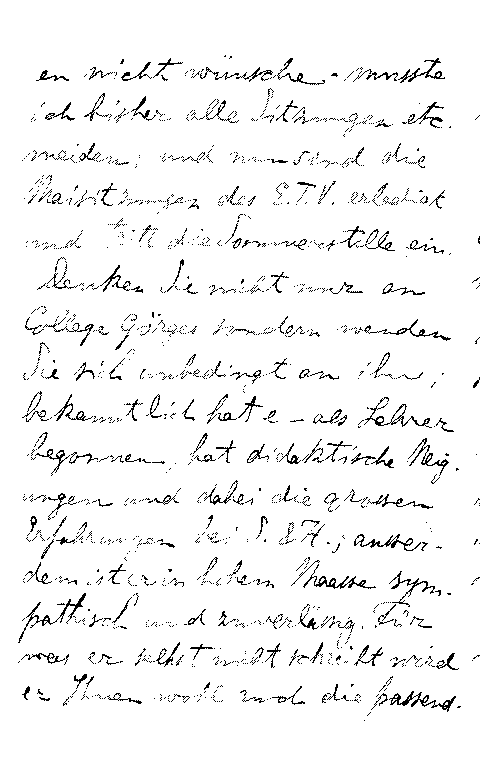 en nicht wünsche - musste
ich bisher alle Sitzungen etc.
meiden; und nun sind die
Maisitzungen des E.T.V. erledigt
und tritt die Sommerstille ein.
Denken Sie nicht nur an
College Görges sondern wenden
Sie sich unbedingt an ihn;
bekanntlich hat e - als Lehrer
begonnen, hat didaktische Neig-
ungen und dabei die grossen
Erfahrungen bei S. & H.; ausser-
dem ist er in hohem Maasse sym-
pathisch und zuverlässig. Für
was er selbst nicht schreibt wird
er Ihnen wohl und die passend-